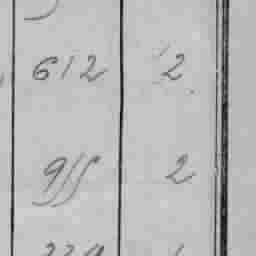 612 2
955 2